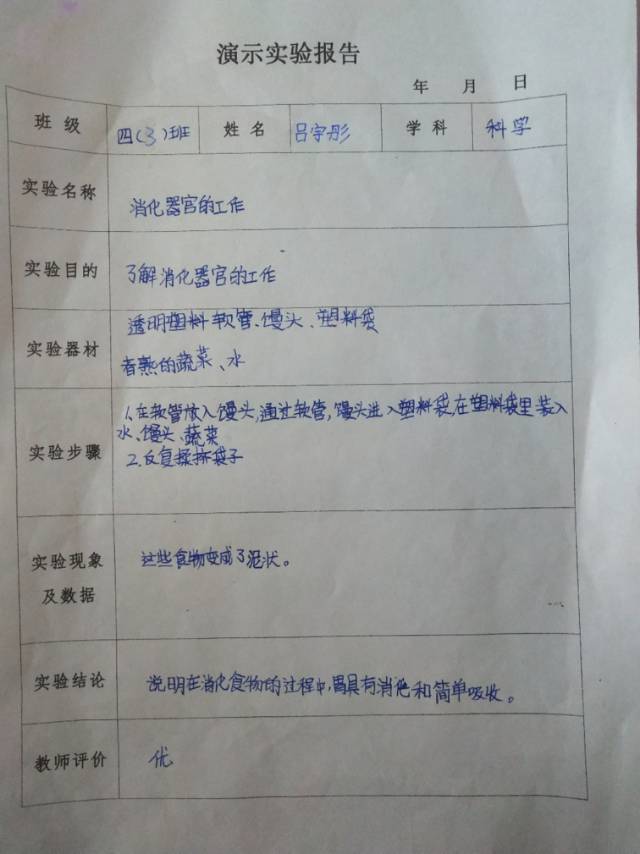 演示实验报告
年 月 日
班 级 四(3)班 姓 名 吕宇彤 学 科 科学
实验名称 消化器官的工作
实验目的 了解消化器官的工作
实验器材 透明塑料软管、馒头、塑料袋
者熟的蔬菜、水
实验步骤 1.在软管放入馒头,通过软管,馒头进入塑料袋,在塑料袋里装入
水、馒头、蔬菜
2.反复揉挤袋子
实验现象
及数据 这些食物变成了泥状。
实验结论 说明在消化食物的过程中,胃具有消化和简单吸收。
教师评价 优